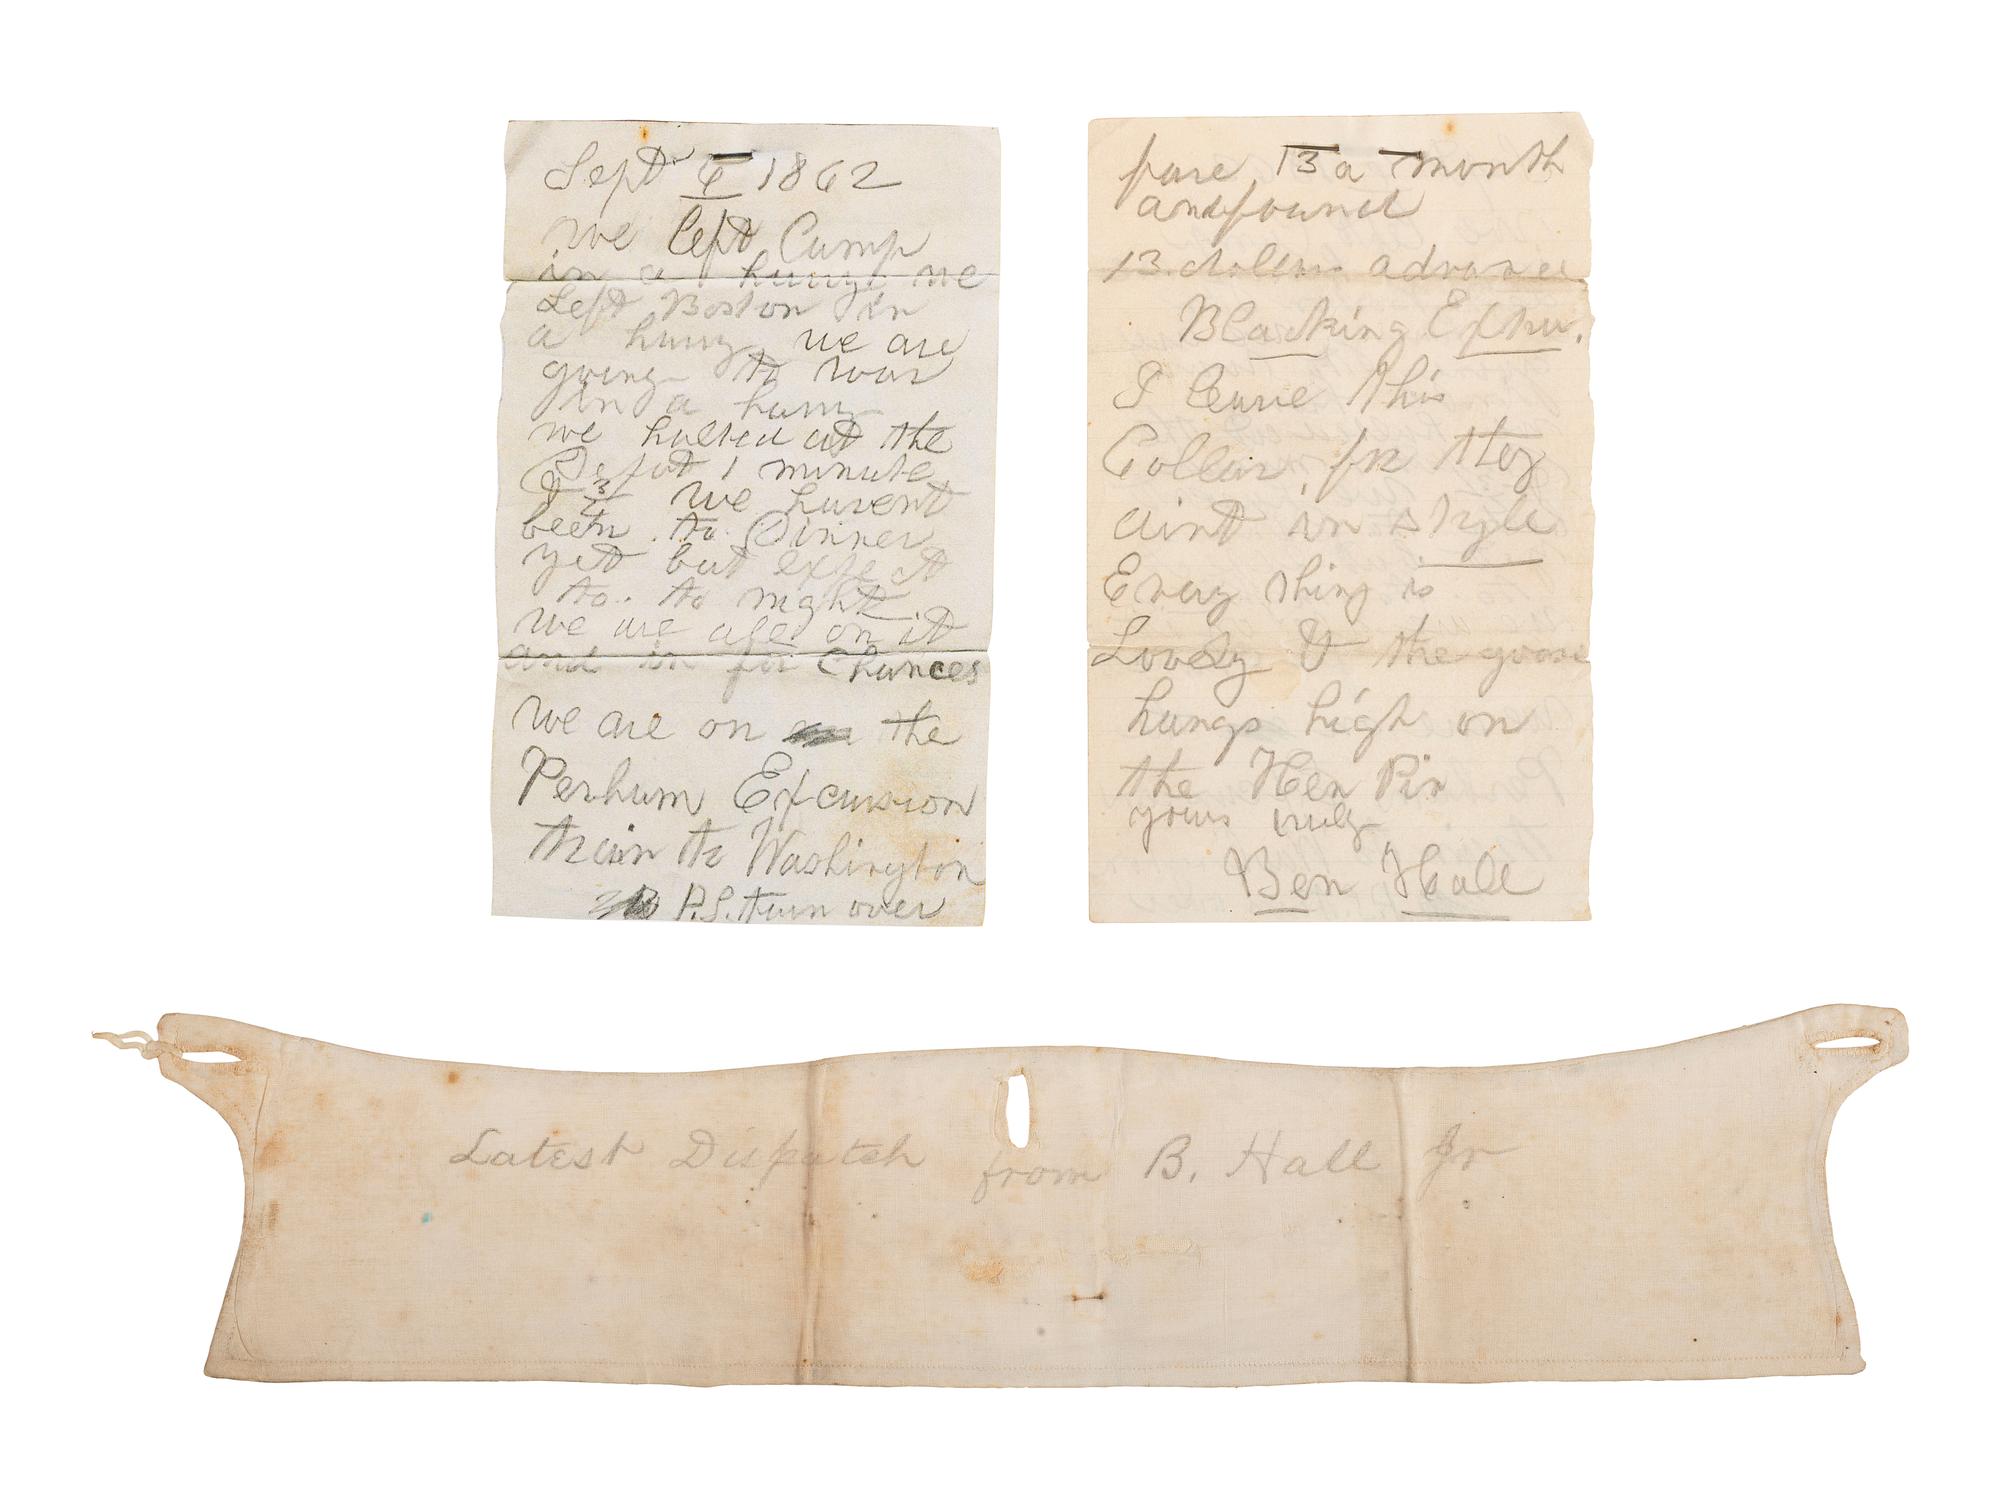 Sept 6 1862
we left Camp
in a hurry we
Left Boston in
a hurry we are
going to war
in a hurry
we halted at the
Depot 1 minute
& 3/4 we havent
been to Dinner
yet but expect
to. to night
we are all on it
and in for Chances
we are on the
Perham Excursion
train to Washington
P.S. turn over
fare 13 a month
and found
13. dolars advance
Blacking Extra.
I leave this
Collar, for they
aint in style
Every thing is
Lovely & the goose
hangs high on
the Hen Pin
yours truly
Ben Hall
Latest Dispatch from B. Hall Jr